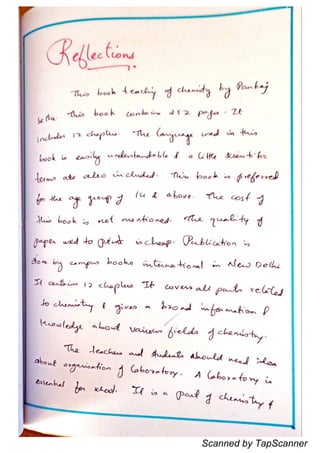 Reflections
This book teaching of chemistry by Pankaj
Sethi. This book contain 252 pages. It
includes 12 chapter. The language used in this
book is easily understandable & a little scientific
terms are also included. This book is preferred
for the age group of 14 & above. The cost of
this book is not mentioned. The quality of
paper used to print is cheap. Publication is
done by campus books international in New Delhi
It contains 12 chapters It covers all parts related
to chemistry & gives a broad information &
knowledge about various fields of chemistry.
The teachers and students should need idea
about organisation of laboratory. A laboratory is
essential for school. It is a part of chemistry &
Scanned by TapScanner